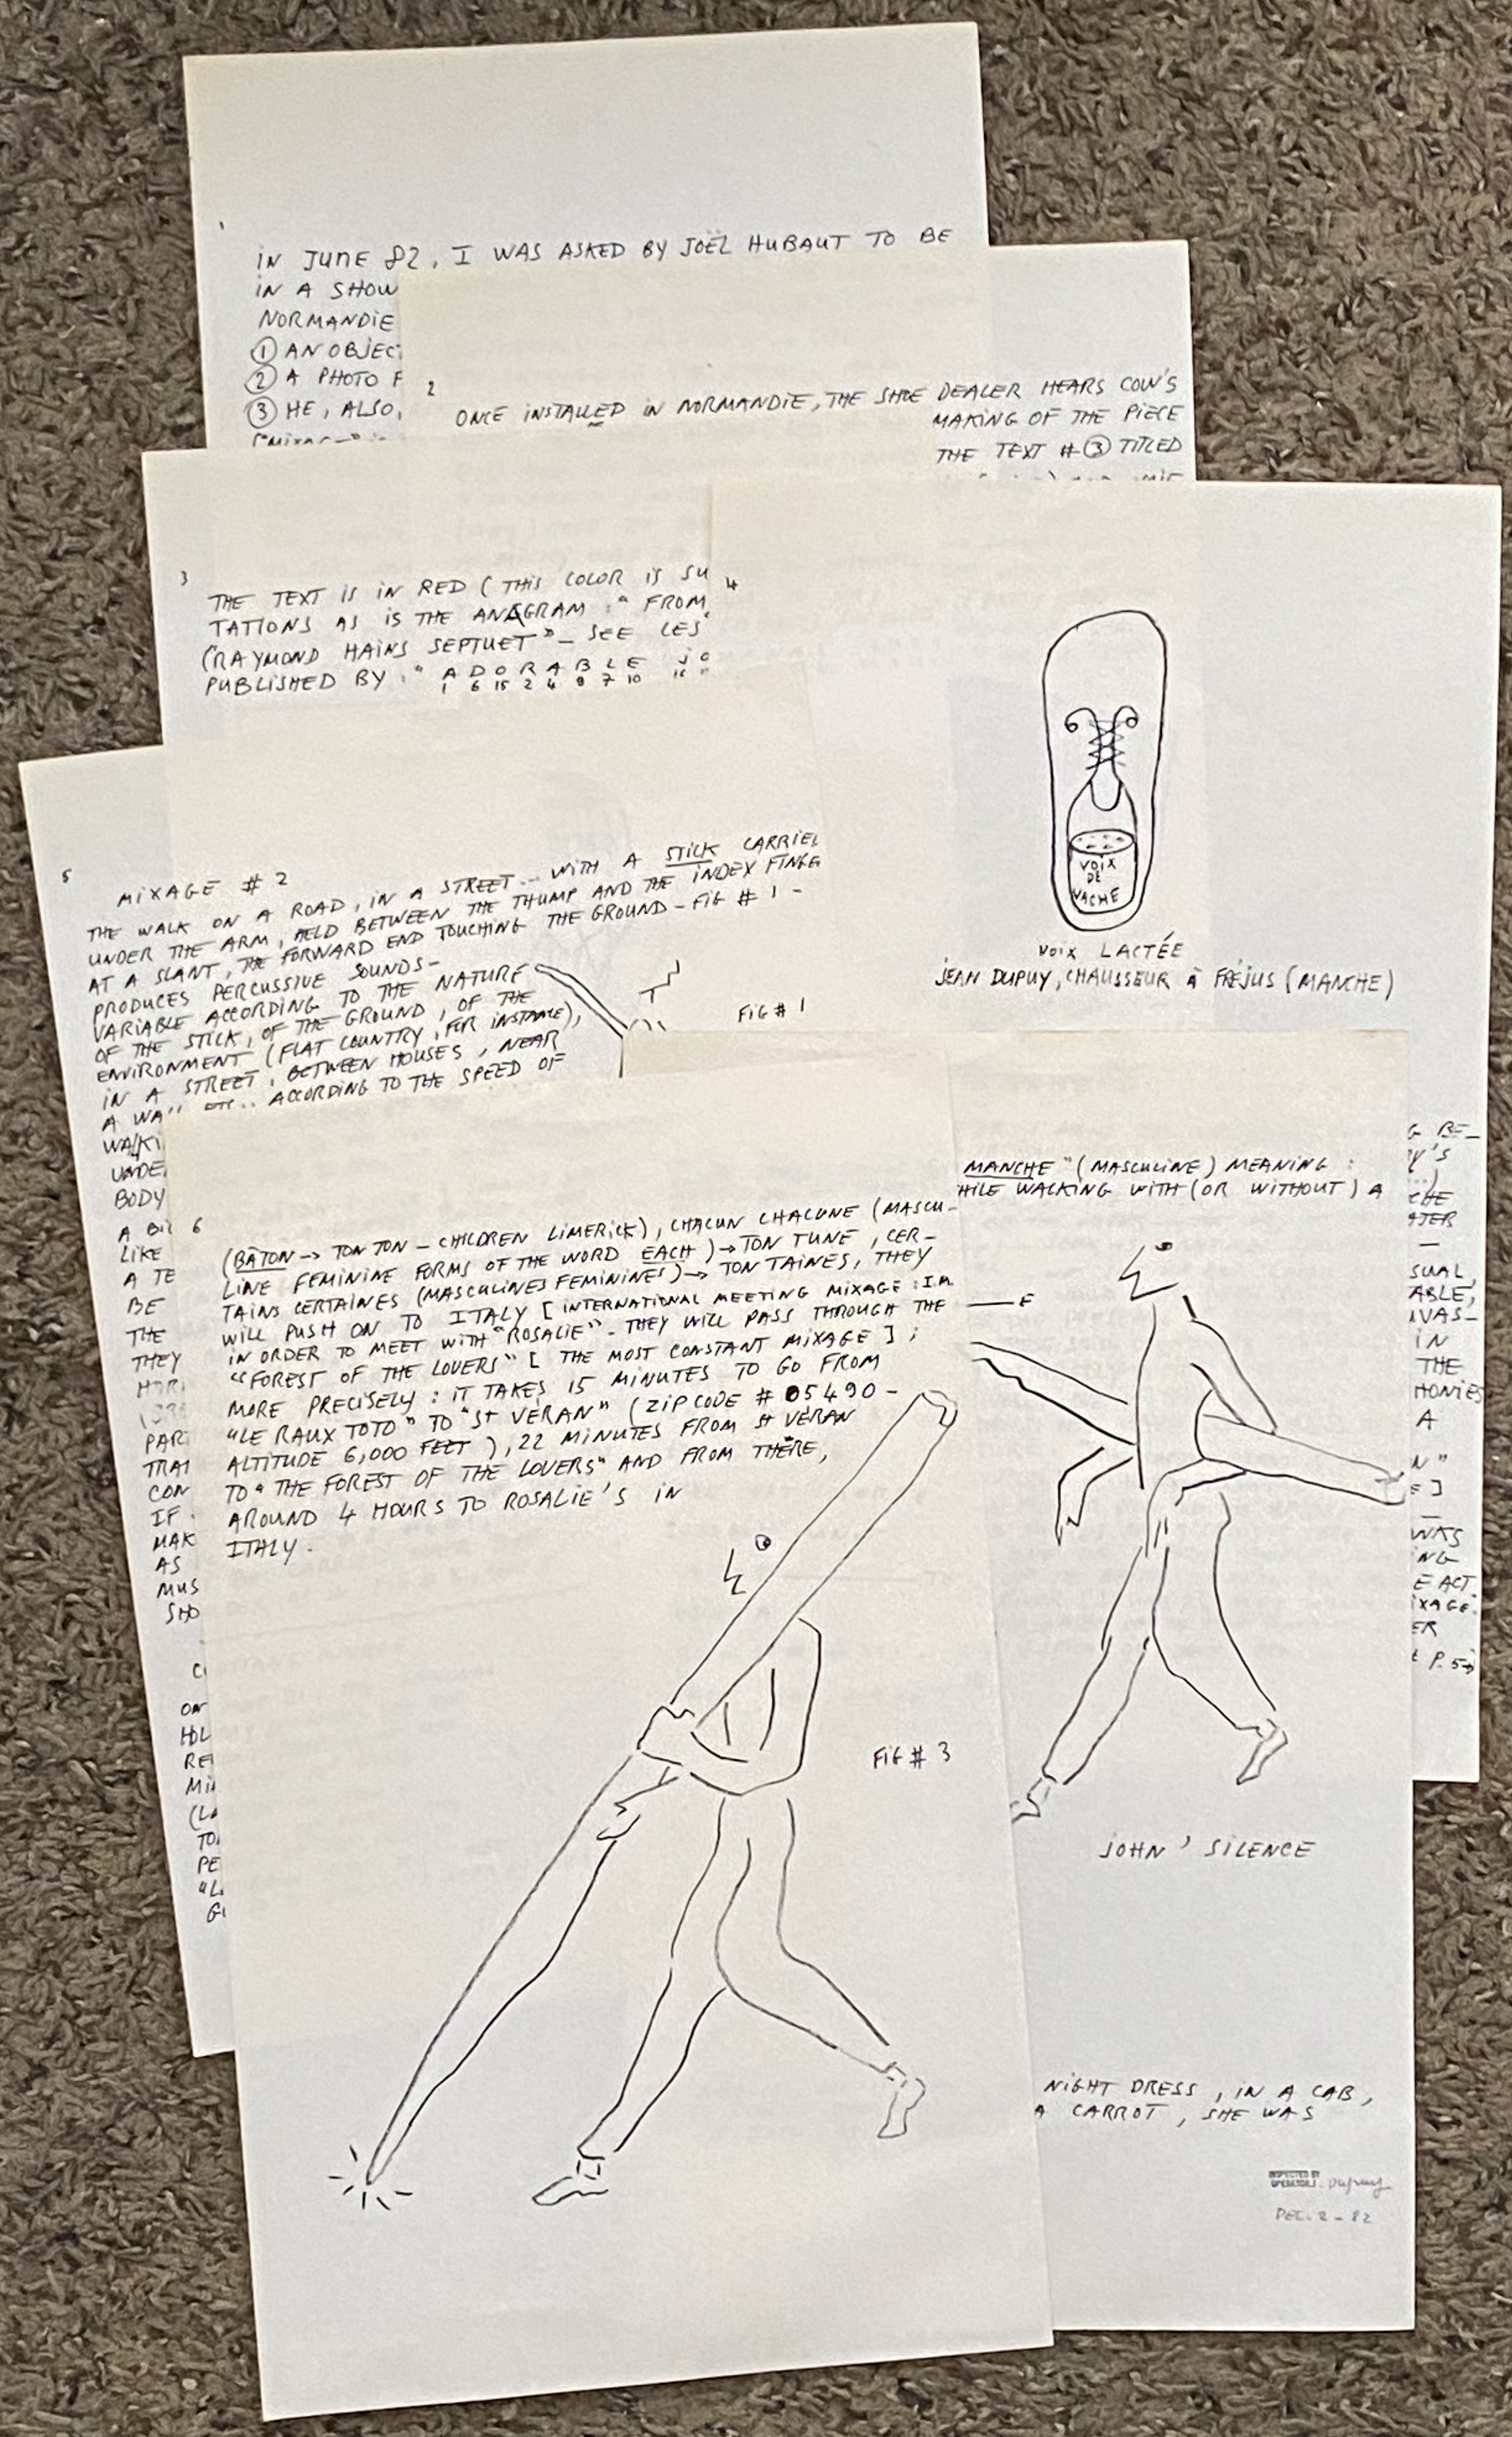 IN JUNE 82, I WAS ASKED BY JOËL HUBAUT TO BE
IN A SHOW
NORMANDIE
① AN OBJEC
② A PHOTO F
③ HE, ALSO,
2
ONCE INSTALLED IN NORMANDIE, THE SHOE DEALER HEARS COW'S
MAKING OF THE PIECE
THE TEXT # ③ TITLED
3
THE TEXT IS IN RED (THIS COLOR IS SU
TATIONS AS IS THE ANAGRAM : " FROM
(RAYMOND HAINS SEPTUET" - SEE LES
PUBLISHED BY : " A D O R A B L E J O
1 6 15 2 4 9 7 10
4
VOIX
DE
VACHE
VOIX LACTÉE
JEAN DUPUY, CHAUSSEUR à FRÉJUS (MANCHE)
5
MIXAGE # 2
THE WALK ON A ROAD, IN A STREET... WITH A STICK CARRIED
UNDER THE ARM, HELD BETWEEN THE THUMP AND THE INDEX FINGE
AT A SLANT, THE FORWARD END TOUCHING THE GROUND - FIG # 1 -
PRODUCES PERCUSSIVE SOUNDS -
VARIABLE ACCORDING TO THE NATURE
OF THE STICK, OF THE GROUND, OF THE
ENVIRONMENT (FLAT COUNTRY, FOR INSTANCE),
IN A STREET, BETWEEN HOUSES, NEAR
A WA ETC... ACCORDING TO THE SPEED OF
WALKI
UNDE
BODY
A BI
LIKE
A TE
BE
THE
THEY
PAR
TRAI
CON
IF
MAK
AS
MUS
SHO
ON
HOL
RE
MI
(LA
TO
PE
"L
G
FIG # 1
6
(BÂTON → TON TON - CHILDREN LIMERICK), CHACUN CHACUNE (MASCU-
LINE FEMININE FORMS OF THE WORD EACH) → TON TUNE, CER-
TAINS CERTAINES (MASCULINES FEMININES) → TON TAINES, THEY
WILL PUSH ON TO ITALY [INTERNATIONAL MEETING MIXAGE : I.M
IN ORDER TO MEET WITH "ROSALIE" - THEY WILL PASS THROUGH THE
"FOREST OF THE LOVERS" [THE MOST CONSTANT MIXAGE] ;
MORE PRECISELY : IT TAKES 15 MINUTES TO GO FROM
"LE RAUX TOTO" TO "St VÉRAN" (ZIP CODE # 05490 -
ALTITUDE 6,000 FEET), 22 MINUTES FROM St VÉRAN
TO "THE FOREST OF THE LOVERS" AND FROM THERE,
AROUND 4 HOURS TO ROSALIE'S IN
ITALY.
FIG # 3
MANCHE " (MASCULINE) MEANING :
HILE WALKING WITH (OR WITHOUT) A
F
JOHN ' SILENCE
NIGHT DRESS, IN A CAB,
A CARROT, SHE WAS
INSPECTED BY
Dupuy
DEC. 2 - 82
G BE-
Y'S
CHE
ATER
SUAL,
ABLE,
IVAS-
IN
THE
MONIES
A
N"
E]
WAS
NG
E ACT
IXAGE.
ER
P. 5→